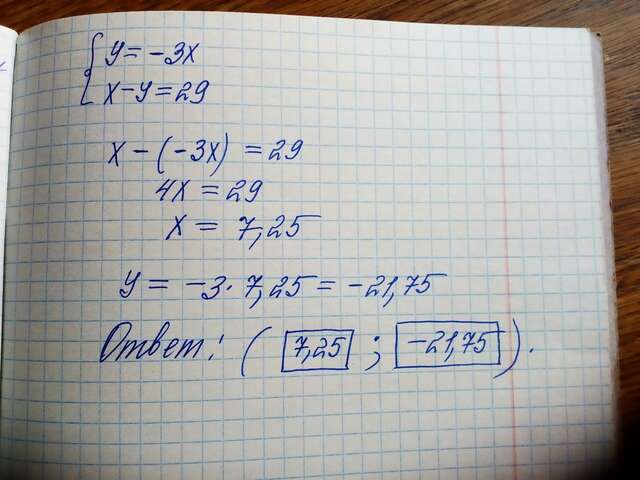 { y = -3x
x - y = 29
x - (-3x) = 29
4x = 29
x = 7,25
y = -3 · 7,25 = -21,75
Ответ: ( 7,25 ; -21,75 ).